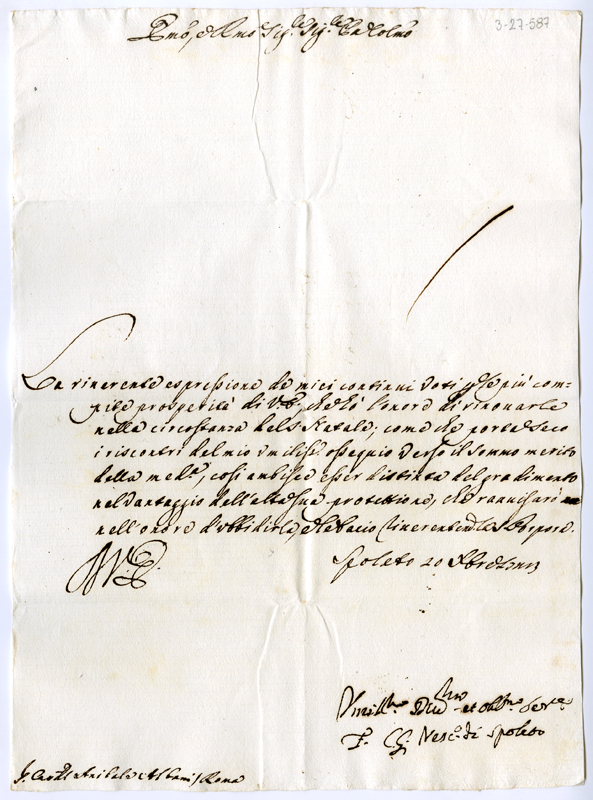 3-27-587
Em̃o, e Rmo Sig.r Sig.r Pad Colmo
La riverente espressione de miei continui voti p le più com=
pite prosperità di V. E., che hò l'onore di rinovarle
nella circostanza del S. Natale, come che porta seco
i riscontri del mio umiliss. ossequio verso il sommo merito
della med.a, così ambisce esser distinta del gradimento
nel vantaggio dell'alta sua protettione, che ravviserò
nell'onore d'ubbidirla, e le bacio riverentem.te la S. Porpora.
V. E.
Spoleto 20 Xbre
Umill.mo Div.mo et obb.mo Serre
F. C. G. Vesc.o di Spoleto
S. Card.l Anibale Albani / Roma